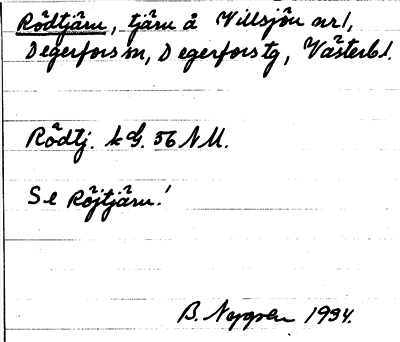 Rödtjärn, tjärn å Villsjön nr 1,
Degerfors sn, Degerfors tg, Västerb l.
Rödtj. k G. 56 NU.
Se Röjtjärn!
B. Nygren 1934.